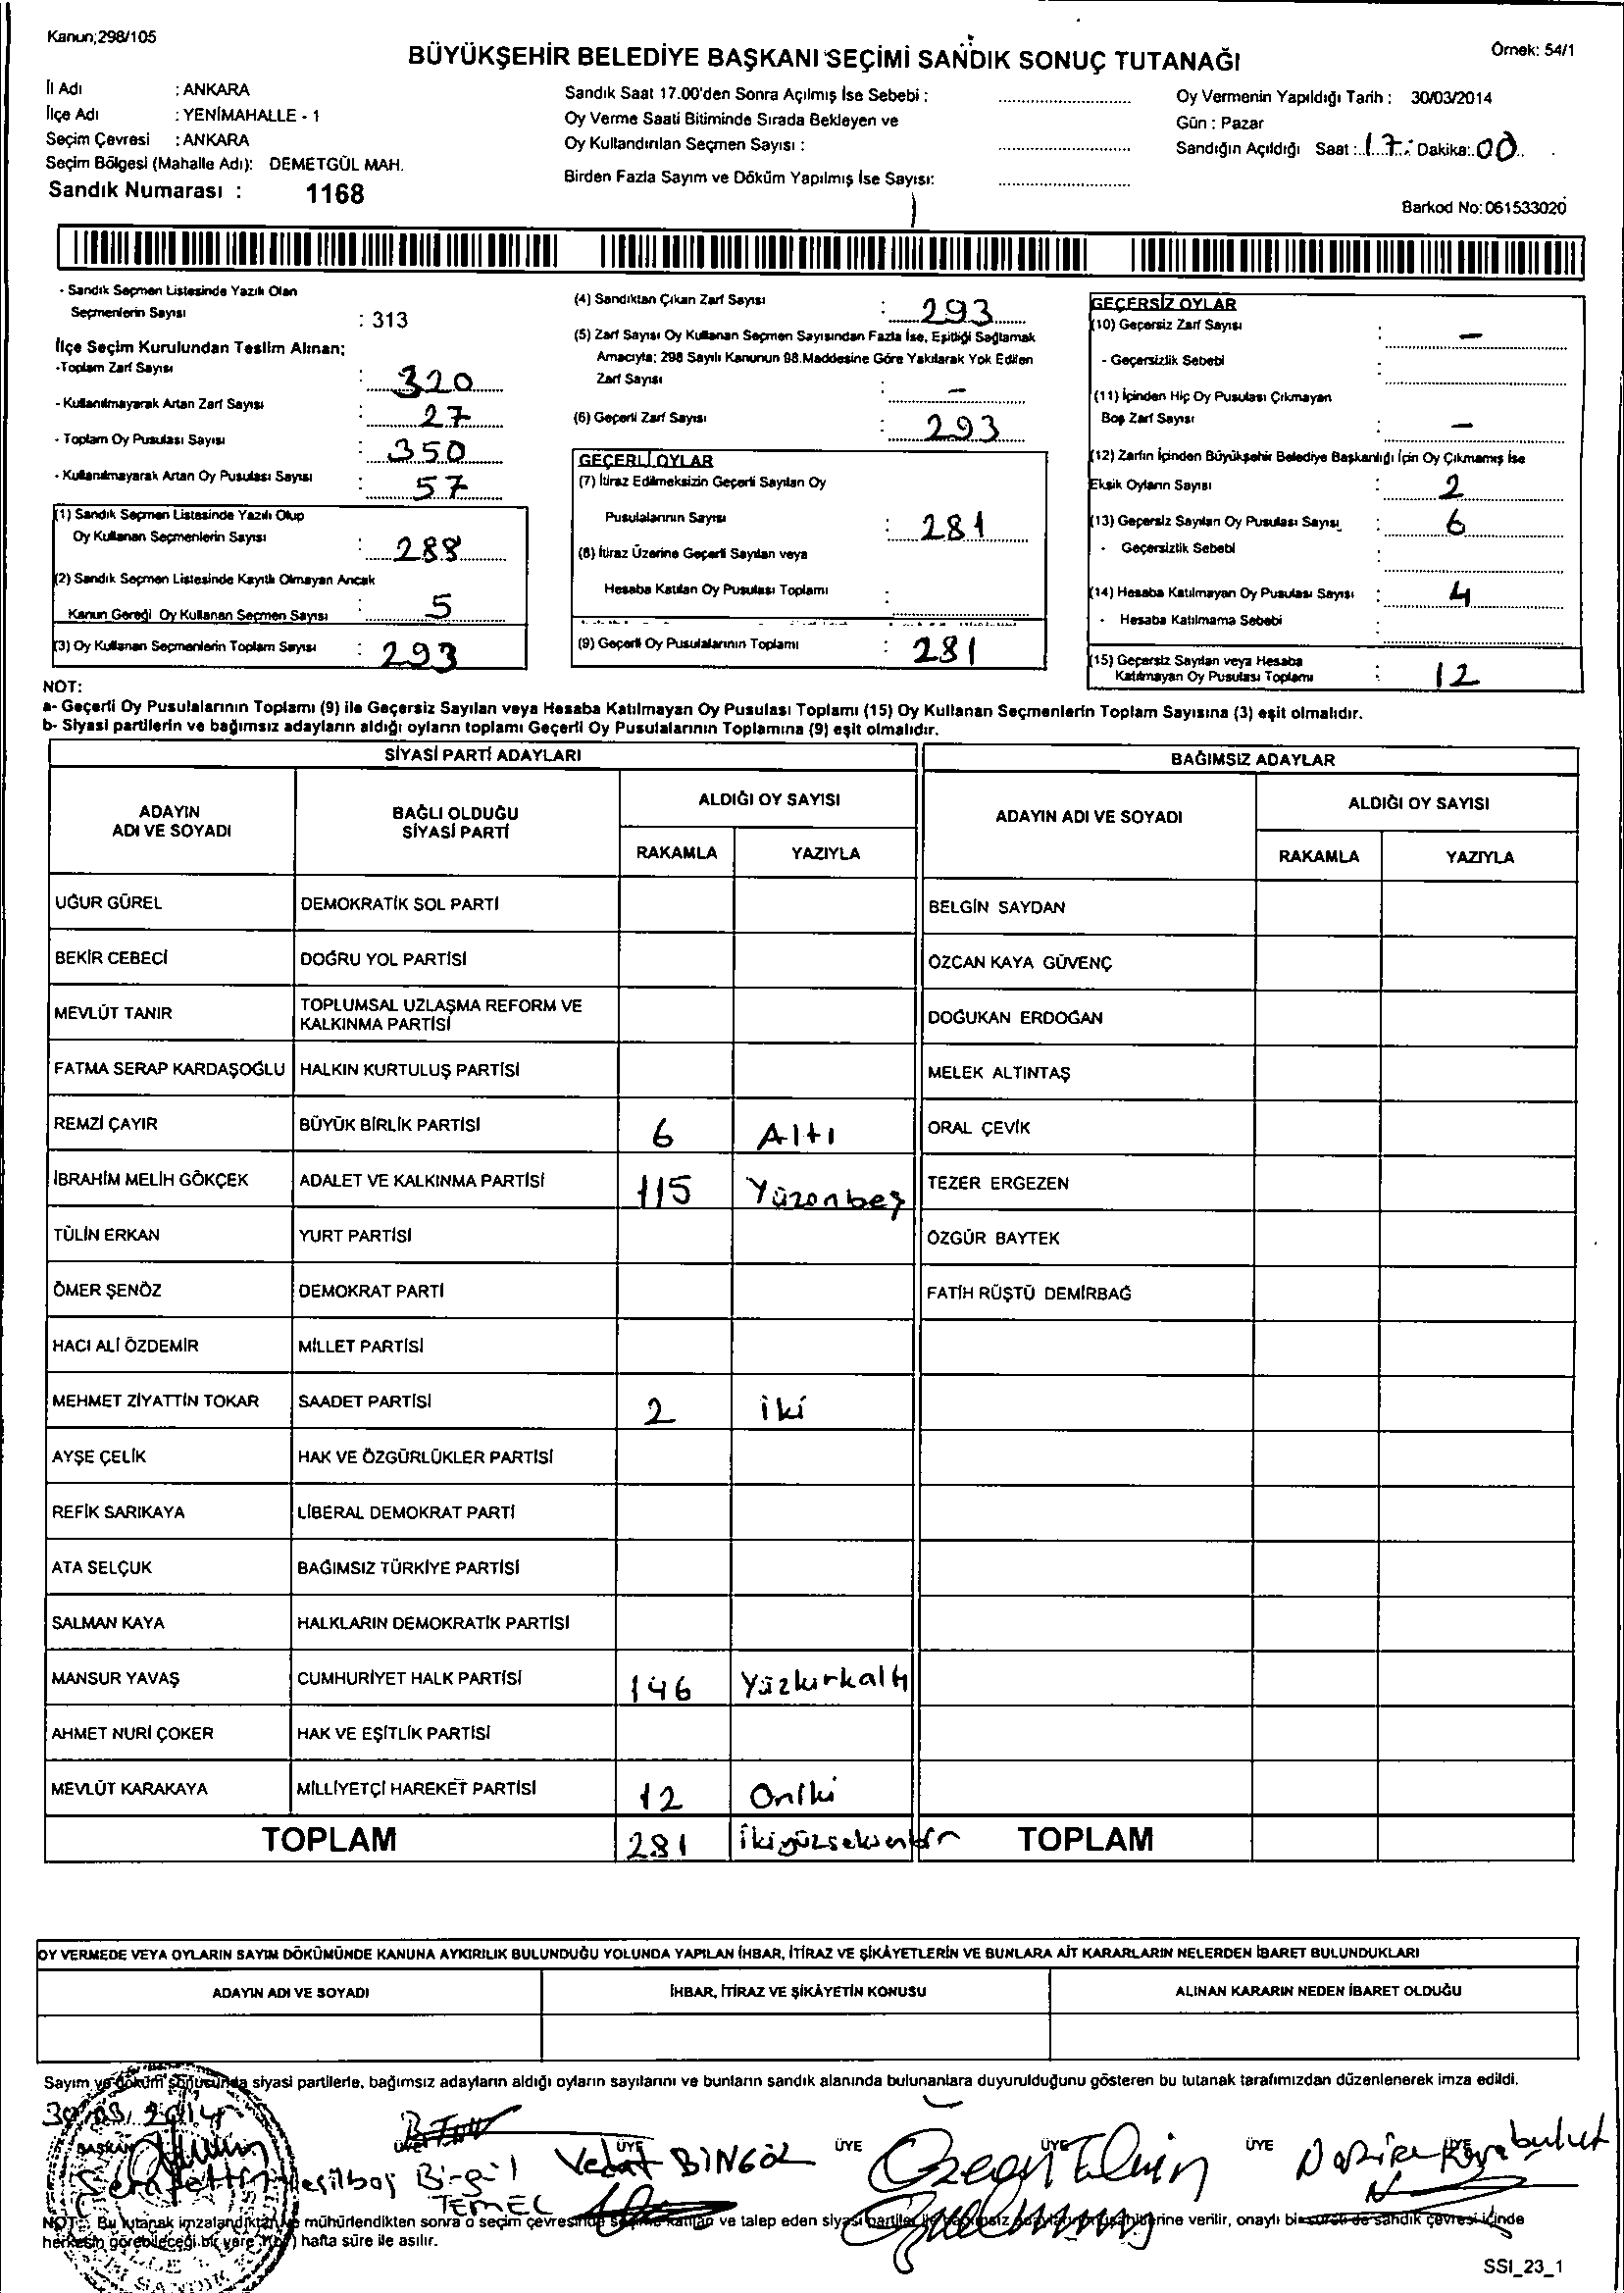 Kanun;298/105
BÜYÜKŞEHİR BELEDİYE BAŞKANI SEÇİMİ SANDIK SONUÇ TUTANAĞI
Örnek: 54/1
İl Adı : ANKARA
İlçe Adı : YENİMAHALLE - 1
Seçim Çevresi : ANKARA
Seçim Bölgesi (Mahalle Adı): DEMETGÜL MAH.
Sandık Numarası : 1168
Sandık Saat 17.00'den Sonra Açılmış İse Sebebi :
Oy Verme Saati Bitiminde Sırada Bekleyen ve
Oy Kullandırılan Seçmen Sayısı :
Birden Fazla Sayım ve Döküm Yapılmış İse Sayısı:
Oy Vermenin Yapıldığı Tarih : 30/03/2014
Gün : Pazar
Sandığın Açıldığı Saat : 17 : Dakika: 00
Barkod No: 061533020
- Sandık Seçmen Listesinde Yazılı Olan
Seçmenlerin Sayısı : 313
İlçe Seçim Kurulundan Teslim Alınan;
-Toplam Zarf Sayısı : 320
- Kullanılmayarak Artan Zarf Sayısı : 27
- Toplam Oy Pusulası Sayısı : 350
- Kullanılmayarak Artan Oy Pusulası Sayısı : 57
(1) Sandık Seçmen Listesinde Yazılı Olup
Oy Kullanan Seçmenlerin Sayısı : 288
(2) Sandık Seçmen Listesinde Kayıtlı Olmayan Ancak
Kanun Gereği Oy Kullanan Seçmen Sayısı : 5
(3) Oy Kullanan Seçmenlerin Toplam Sayısı : 293
(4) Sandıktan Çıkan Zarf Sayısı : 293
(5) Zarf Sayısı Oy Kullanan Seçmen Sayısından Fazla İse, Eşitliği Sağlamak
Amacıyla; 298 Sayılı Kanunun 98.Maddesine Göre Yakılarak Yok Edilen
Zarf Sayısı : -
(6) Geçerli Zarf Sayısı : 293
GEÇERLİ OYLAR
(7) İtiraz Edilmeksizin Geçerli Sayılan Oy
Pusulalarının Sayısı : 281
(8) İtiraz Üzerine Geçerli Sayılan veya
Hesaba Katılan Oy Pusulası Toplamı :
(9) Geçerli Oy Pusulalarının Toplamı : 281
GEÇERSİZ OYLAR
(10) Geçersiz Zarf Sayısı : -
- Geçersizlik Sebebi :
(11) İçinden Hiç Oy Pusulası Çıkmayan
Boş Zarf Sayısı : -
(12) Zarfın İçinden Büyükşehir Belediye Başkanlığı İçin Oy Çıkmamış İse
Eksik Oyların Sayısı : 2
(13) Geçersiz Sayılan Oy Pusulası Sayısı : 6
- Geçersizlik Sebebi :
(14) Hesaba Katılmayan Oy Pusulası Sayısı : 4
- Hesaba Katılmama Sebebi :
(15) Geçersiz Sayılan veya Hesaba
Katılmayan Oy Pusulası Toplamı : 12
NOT:
a- Geçerli Oy Pusulalarının Toplamı (9) ile Geçersiz Sayılan veya Hesaba Katılmayan Oy Pusulası Toplamı (15) Oy Kullanan Seçmenlerin Toplam Sayısına (3) eşit olmalıdır.
b- Siyasi partilerin ve bağımsız adayların aldığı oyların toplamı Geçerli Oy Pusulalarının Toplamına (9) eşit olmalıdır.
SİYASİ PARTİ ADAYLARI
BAĞIMSIZ ADAYLAR
ADAYIN
ADI VE SOYADI
BAĞLI OLDUĞU
SİYASİ PARTİ
ALDIĞI OY SAYISI
RAKAMLA YAZIYLA
ADAYIN ADI VE SOYADI
ALDIĞI OY SAYISI
RAKAMLA YAZIYLA
UĞUR GÜREL DEMOKRATİK SOL PARTİ BELGİN SAYDAN
BEKİR CEBECİ DOĞRU YOL PARTİSİ ÖZCAN KAYA GÜVENÇ
MEVLÜT TANIR TOPLUMSAL UZLAŞMA REFORM VE
KALKINMA PARTİSİ DOĞUKAN ERDOĞAN
FATMA SERAP KARDAŞOĞLU HALKIN KURTULUŞ PARTİSİ MELEK ALTINTAŞ
REMZİ ÇAYIR BÜYÜK BİRLİK PARTİSİ 6 Altı ORAL ÇEVİK
İBRAHİM MELİH GÖKÇEK ADALET VE KALKINMA PARTİSİ 115 Yüzonbeş TEZER ERGEZEN
TÜLİN ERKAN YURT PARTİSİ ÖZGÜR BAYTEK
ÖMER ŞENÖZ DEMOKRAT PARTİ FATİH RÜŞTÜ DEMİRBAĞ
HACI ALİ ÖZDEMİR MİLLET PARTİSİ
MEHMET ZİYATTİN TOKAR SAADET PARTİSİ 2 iki
AYŞE ÇELİK HAK VE ÖZGÜRLÜKLER PARTİSİ
REFİK SARIKAYA LİBERAL DEMOKRAT PARTİ
ATA SELÇUK BAĞIMSIZ TÜRKİYE PARTİSİ
SALMAN KAYA HALKLARIN DEMOKRATİK PARTİSİ
MANSUR YAVAŞ CUMHURİYET HALK PARTİSİ 146 Yüzkırkaltı
AHMET NURİ ÇOKER HAK VE EŞİTLİK PARTİSİ
MEVLÜT KARAKAYA MİLLİYETÇİ HAREKET PARTİSİ 12 Oniki
TOPLAM 281 İkiyüzseksenbir TOPLAM
OY VERMEDE VEYA OYLARIN SAYIM DÖKÜMÜNDE KANUNA AYKIRILIK BULUNDUĞU YOLUNDA YAPILAN İHBAR, İTİRAZ VE ŞİKÂYETLERİN VE BUNLARA AİT KARARLARIN NELERDEN İBARET BULUNDUKLARI
ADAYIN ADI VE SOYADI İHBAR, İTİRAZ VE ŞİKÂYETİN KONUSU ALINAN KARARIN NEDEN İBARET OLDUĞU
Sayım ve döküm sonucunda siyasi partilerle, bağımsız adayların aldığı oyların sayılarını ve bunların sandık alanında bulunanlara duyurulduğunu gösteren bu tutanak tarafımızdan düzenlenerek imza edildi.
30/03/2014
BAŞKAN ÜYE ÜYE ÜYE ÜYE ÜYE
Yeşilbaş Birgül Vedat BİNGÖL Karabulut
TEMEL
NOT: Bu tutanak imzalandıktan ve mühürlendikten sonra o seçim çevresinde seçime katılan ve talep eden siyasi partiler verilir, onaylı bir sureti de sandık çevresi içinde
herkesin görebileceği bir yere hafta süre ile asılır.
SSI_23_1